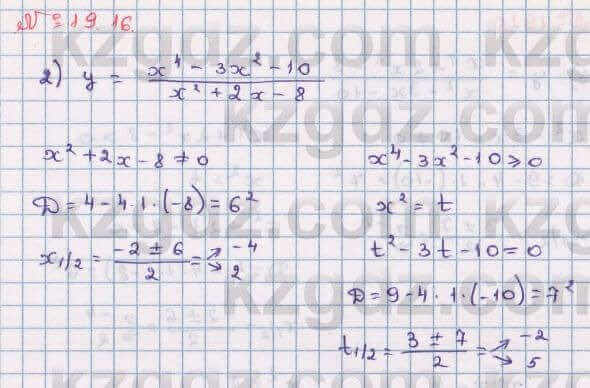 № 19.16.
2) y = (x⁴ - 3x² - 10)/(x² + 2x - 8)
x² + 2x - 8 ≠ 0
D = 4 - 4·1·(-8) = 6²
x₁/₂ = (-2 ± 6)/2 = -4
2
x⁴ - 3x² - 10 ⩾ 0
x² = t
t² - 3t - 10 = 0
D = 9 - 4·1·(-10) = 7²
t₁/₂ = (3 ± 7)/2 = -2
5
kzgdz.com